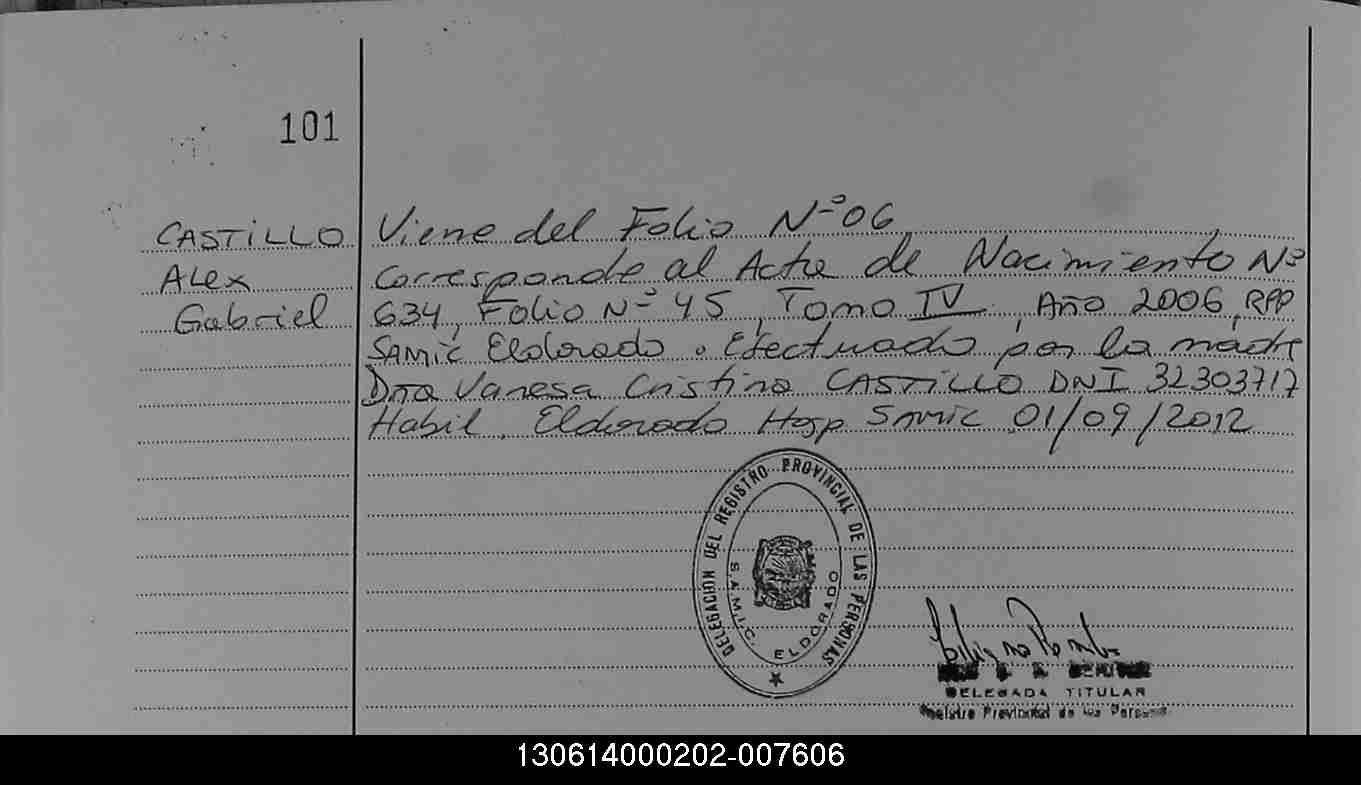 101
CASTILLO
Alex
Gabriel
Viene del Folio Nº 06
Corresponde al Acta de Nacimiento Nº
634, Folio Nº 45, Tomo IV, Año 2006, RPP
SAMIC Eldorado. Efectuado por la madre
Dña Vanesa Cristina CASTILLO DNI 32303717
Habil. Eldorado Hosp SAMIC 01/09/2012
DELEGACION DEL REGISTRO PROVINCIAL DE LAS PERSONAS
S.A.M.I.C. ELDORADO
DELEGADA TITULAR
Registro Provincial de las Personas
130614000202-007606